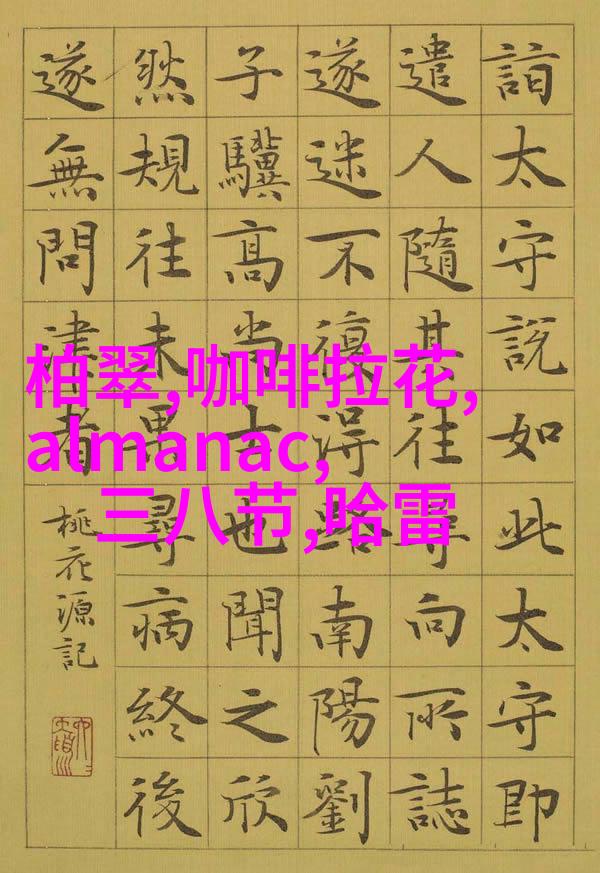 詣太守說如此太守即
遣人隨其往尋向所誌
遂迷不復得路南陽劉
子驥高尚士也聞之欣
然規往未果尋病終後
遂無問津者
桃花源記
柏翠,咖啡拉花,
almanac,
三八节,哈雷